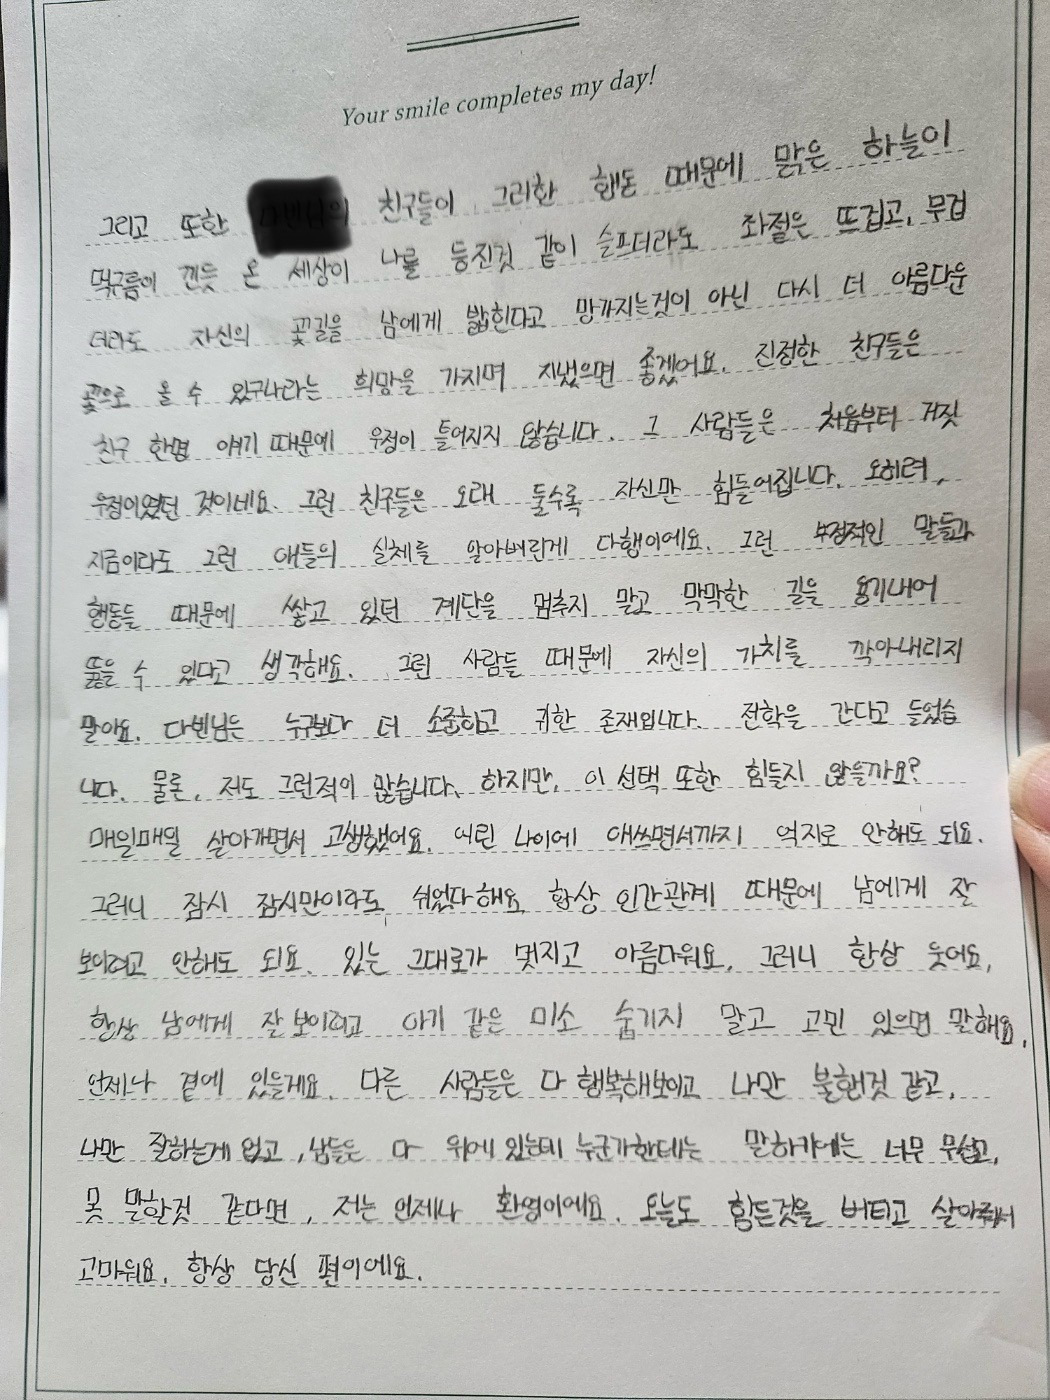 Your smile completes my day!
그리고 또한 친구들이 그리한 행동 때문에 맑은 하늘이
먹구름이 낀듯 온 세상이 나를 등진것 같이 슬프더라도 좌절은 뜨겁고, 무겁
더라도 자신의 꽃길을 남에게 밟힌다고 망가지는것이 아닌 다시 더 아름다운
꽃으로 올 수 있구나라는 희망을 가지며 지냈으면 좋겠어요. 진정한 친구들은
친구 한명 얘기 때문에 우정이 틀어지지 않습니다. 그 사람들은 처음부터 거짓
우정이였던 것이네요. 그런 친구들은 오래 둘수록 자신만 힘들어집니다. 오히려,
지금이라도 그런 애들의 실체를 알아버린게 다행이에요. 그런 부정적인 말들과
행동들 때문에 쌓고 있던 계단을 멈추지 말고 막막한 길을 용기내어
뚫을 수 있다고 생각해요. 그런 사람들 때문에 자신의 가치를 깍아내리지
말아요. 다빈님은 누구보다 더 소중하고 귀한 존재입니다. 전학을 간다고 들었습
니다. 물론, 저도 그런적이 많습니다. 하지만, 이 선택 또한 힘들지 않을까요?
매일매일 살아가면서 고생했어요. 어린 나이에 애쓰면서까지 억지로 안해도 되요.
그러니 잠시 잠시만이라도 쉬었다해요 항상 인간관계 때문에 남에게 잘
보이려고 안해도 되요. 있는 그대로가 멋지고 아름다워요. 그러니 항상 웃어요,
항상 남에게 잘 보이려고 아기 같은 미소 숨기지 말고 고민 있으면 말해요,
언제나 곁에 있을게요. 다른 사람들은 다 행복해보이고 나만 불행한것 같고,
나만 잘하는게 없고, 남들은 다 위에 있는데 누군가한테는 말하기에는 너무 무섭고,
못 말할것 같다면, 저는 언제나 환영이에요. 오늘도 힘든것을 버티고 살아줘서
고마워요. 항상 당신 편이에요.